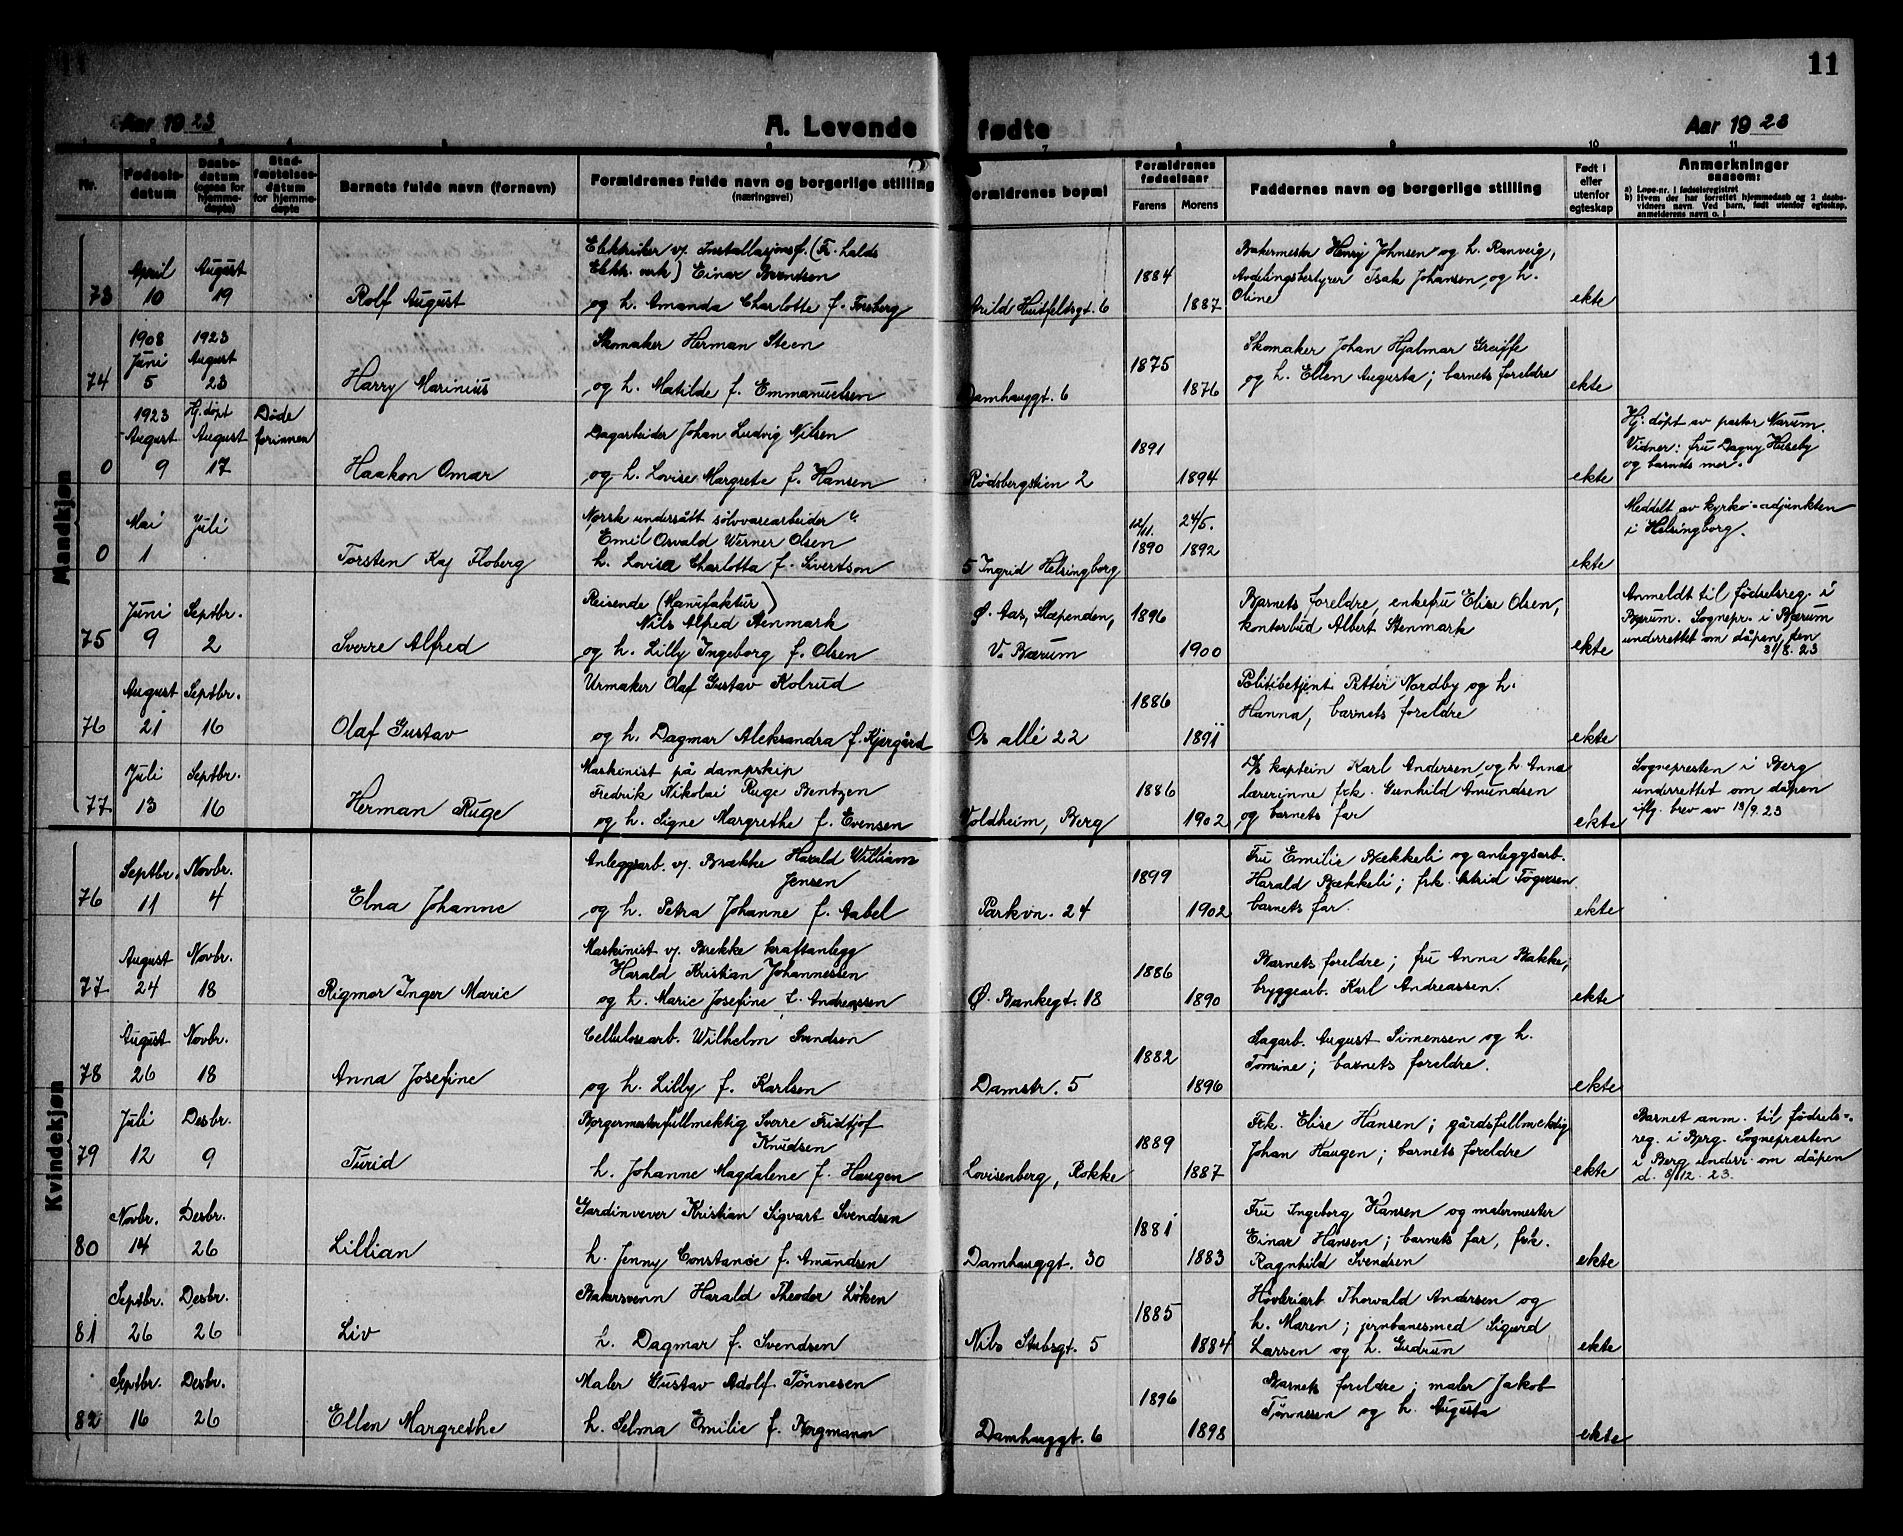 11
Aar 1923
A. Levende fødte
Aar 1923
Nr.
Fødsels-
datum
Daabs-
datum
(ogsaa for
hjemme-
døpte)
Stad-
fæstelses-
datum
for hjemme-
døpte
Barnets fulde navn (fornavn)
Forældrenes fulde navn og borgerlige stilling
(næringsvei)
Forældrenes bopæl
Forældrenes
fødselsaar
Farens
Morens
Faddernes navn og borgerlige stilling
Født i
eller
utenfor
egteskap
Anmerkninger
saasom:
a) Løpe-nr. i fødselsregistret
b) Hvem der har forrettet hjemmedaab og 2 daabs-
vidners navn. Ved barn, født utenfor egteskap,
anmelderens navn o. l
Mandkjøn
73
April
10
August
19
Rolf August
Elektriker v/ Installasjonsf. (Fr. halds
Elktr. verk) Einar Berndsen
og h. Amanda Charlotte f. Forsberg
Arild Huitfeldsgt. 6
1884
1887
Bakermester Henry Johnsen og h. Ranveig,
Avdelingsbestyrer Isak Johansen, og h.
Oline
ekte
74
1908
Juni
5
1923
August
23
Harry Marinius
Skomaker Herman Steen
og h. Matilde f. Emmanuelsen
Damhauggt. 6
1875
1876
Skomaker Johan Hjalmar Greiffe
og h. Ellen Augusta; barnets foreldre
ekte
0
1923
August
9
Hj. døpt
August
17
Døde
forinnen
Haakon Omar
Dagarbeider Johan Ludvig Nilsen
og h. Lovise Margrete f. Hansen
Rødsbergstien 2
1891
1894
ekte
Hj. døpt av pastor Narum.
Vidner: fru Dagny Huseby
og barnets mor.
0
Mai
1
Juli
Torsten Kaj Floberg
Norsk undersått sølvvarearbeider
Emil Osvald Werner Olsen
h. Lovisa Charlotta f. Sivertson
5 Ingrid Helsingborg
12/11.
1890
24/5.
1892
ekte
Meddelt av kyrko-adjunkten
i Helsingborg.
75
Juni
9
Septbr.
2
Sverre Alfred
Reisende (Manufaktur)
Nils Alfred Stenmark
og h. Lilly Ingeborg f. Olsen
Ø. Aas, Slæpenden,
V. Bærum
1896
1900
Barnets foreldre, enkefru Elise Olsen,
kontorbud Albert Stenmark
ekte
Anmeldt til fødselsreg. i
Bærum. Sognepr. i Bærum
underrettet om dåpen, den
31/8. 23
76
August
21
Septbr.
16
Olaf Gustav
Urmaker Olaf Gustav Kolrud
og h. Dagmar Aleksandra f. Kjergård
Os allé 22
1886
1891
Politibetjent Petter Nordby og h.
Hanna, barnets foreldre
ekte
77
Juli
13
Septbr.
16
Herman Ruge
Maskinist på dampskip
Fredrik Nikolai Ruge Bentzen
og h. Signe Margrethe f. Evensen
Voldheim, Berg
1886
1902
D/S kaptein Karl Andersen, og h. Anna
lærerinne frk. Gunhild Amundsen
og barnets far
ekte
Sognepresten i Berg
underrettet om dåpen
iflg. brev av 13/9. 23
Kvindekjøn
76
Septbr.
11
Novbr.
4
Elna Johanne
Anleggsarb. v/ Brække Harald William
Jensen
og h. Petra Johanne f. Aabel
Parkvn. 24
1899
1902
Fru Emilie Bækkeli og anleggsarb.
Harald Bækkeli; frk. Astrid Tøgersen
barnets far.
ekte
77
August
24
Novbr.
18
Rigmor Inger Marie
Maskinist v/ Brekke kraftanlegg
Harald Kristian Johannessen
og h. Marie Josefine f. Andreassen
Ø. Bankegt. 18
1886
1890
Barnets foreldre; fru Anna Bakke;
bryggearb. Karl Andreassen.
ekte
78
August
26
Novbr.
18
Anna Josefine
Cellulosearb. Wilhelm Svendsen
og h. Lilly f. Karlsen
Damstr. 5
1882
1896
Sagarb. August Simensen og h.
Tomine; barnets foreldre.
ekte
79
Juli
12
Desbr.
9
Turid
Borgermesterfullmektig Sverre Fridtjof
Knudsen
h. Johanne Magdalene f. Haugen
Lovisenberg, Rokke
1889
1887
Frk. Elise Hansen; gårdsfullmektig
Johan Haugen; barnets foreldre
ekte
Barnet anm. til fødsels-
reg. i Berg. Sognepresten
i Berg underr. om dåpen
d. 8/12. 23.
80
Novbr.
14
Desbr.
26
Lillian
Gardinvever Kristian Sigvart Svendsen
h. Jenny Constance f. Amundsen
Damhauggt. 30
1881
1883
Fru Ingeborg Hansen og malermester
Einar Hansen; barnets far, frk.
Ragnhild Svendsen
ekte
81
Septbr.
26
Desbr.
26
Liv
Bakersvenn Harald Theodor Løken
h. Dagmar f. Svendsen
Nils Stubsgt. 5
1885
1884
Høvleriarb. Thorvald Andersen og
h. Maren; jernbanesmed Sigurd
Larsen og h. Gudrun
ekte
82
Septbr.
16
Desbr.
26
Ellen Margrethe
Maler Gustav Adolf Tønnesen
h. Selma Emilie f. Borgmann
Damhauggt. 6
1896
1898
Barnets foreldre; maler Jakob
Tønnesen og h. Augusta
ekte